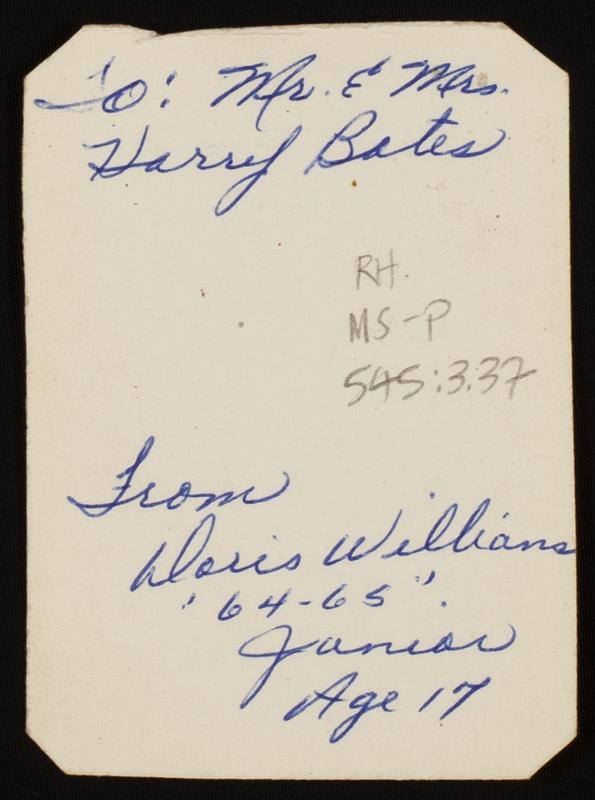 To: Mr. & Mrs.
Harry Bates
RH.
MS-P
545:3.37
From
Doris Williams
'64-65'.
Junior
Age 17